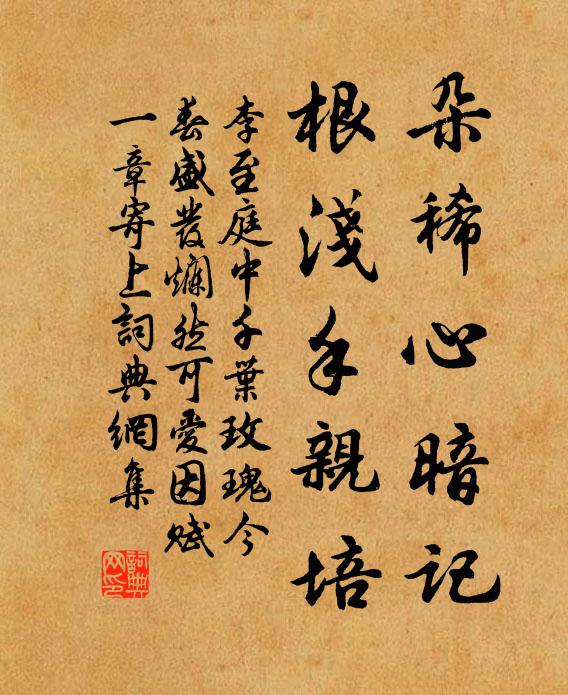 朵稀心暗記
根淺手親培
李至庭中千葉玫瑰今
春盛發爛然可愛因賦
一章寄上詞典網集
詞典网印